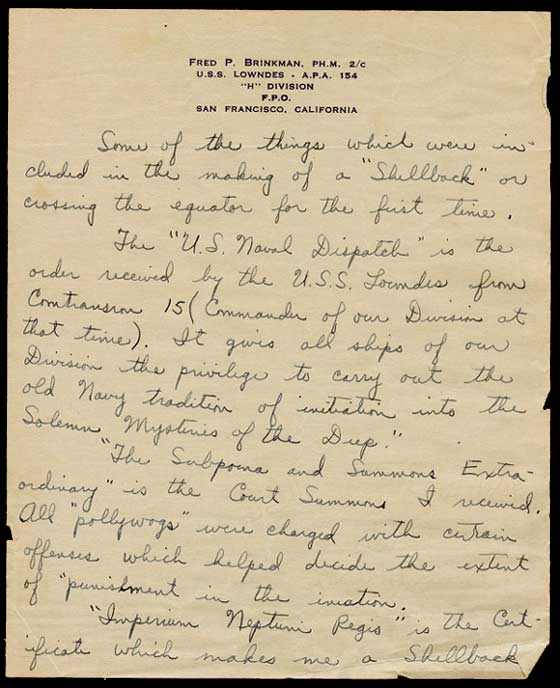 FRED P. BRINKMAN, PH.M. 2/c
U.S.S. LOWNDES - A.P.A. 154
"H" DIVISION
F.P.O.
SAN FRANCISCO, CALIFORNIA
Some of the things which were in-
cluded in the making of a "Shellback" or
crossing the equator for the first time.
The "U.S. Naval Dispatch" is the
order received by the U.S.S. Lowndes from
Comtransron 15 (Commander of our Division at
that time). It gives all ships of our
Division the privilege to carry out the
old Navy tradition of initiation into the
Solemn Mysteries of the Deep."
"The Subpoena and Summons Extra-
ordinary" is the Court Summons I received.
All "pollywogs" were charged with certain
offenses which helped decide the extent
of "punishment in the iniation.
"Imperium Neptuni Regis" is the Cert-
ificate which makes me a Shellback